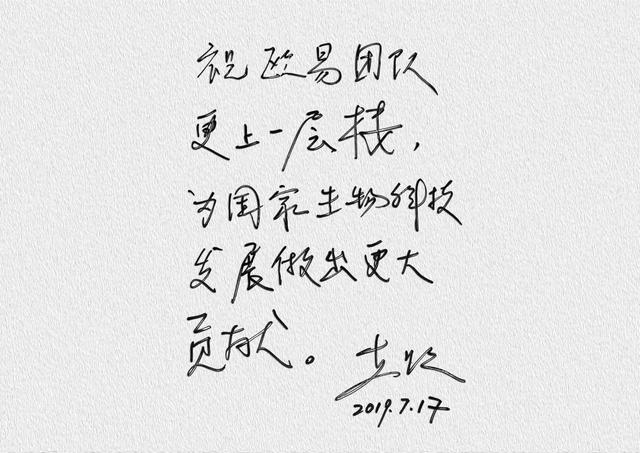 祝欧易团队
更上一层楼，
为国家生物科技
发展做出更大
贡献。
2019.7.17